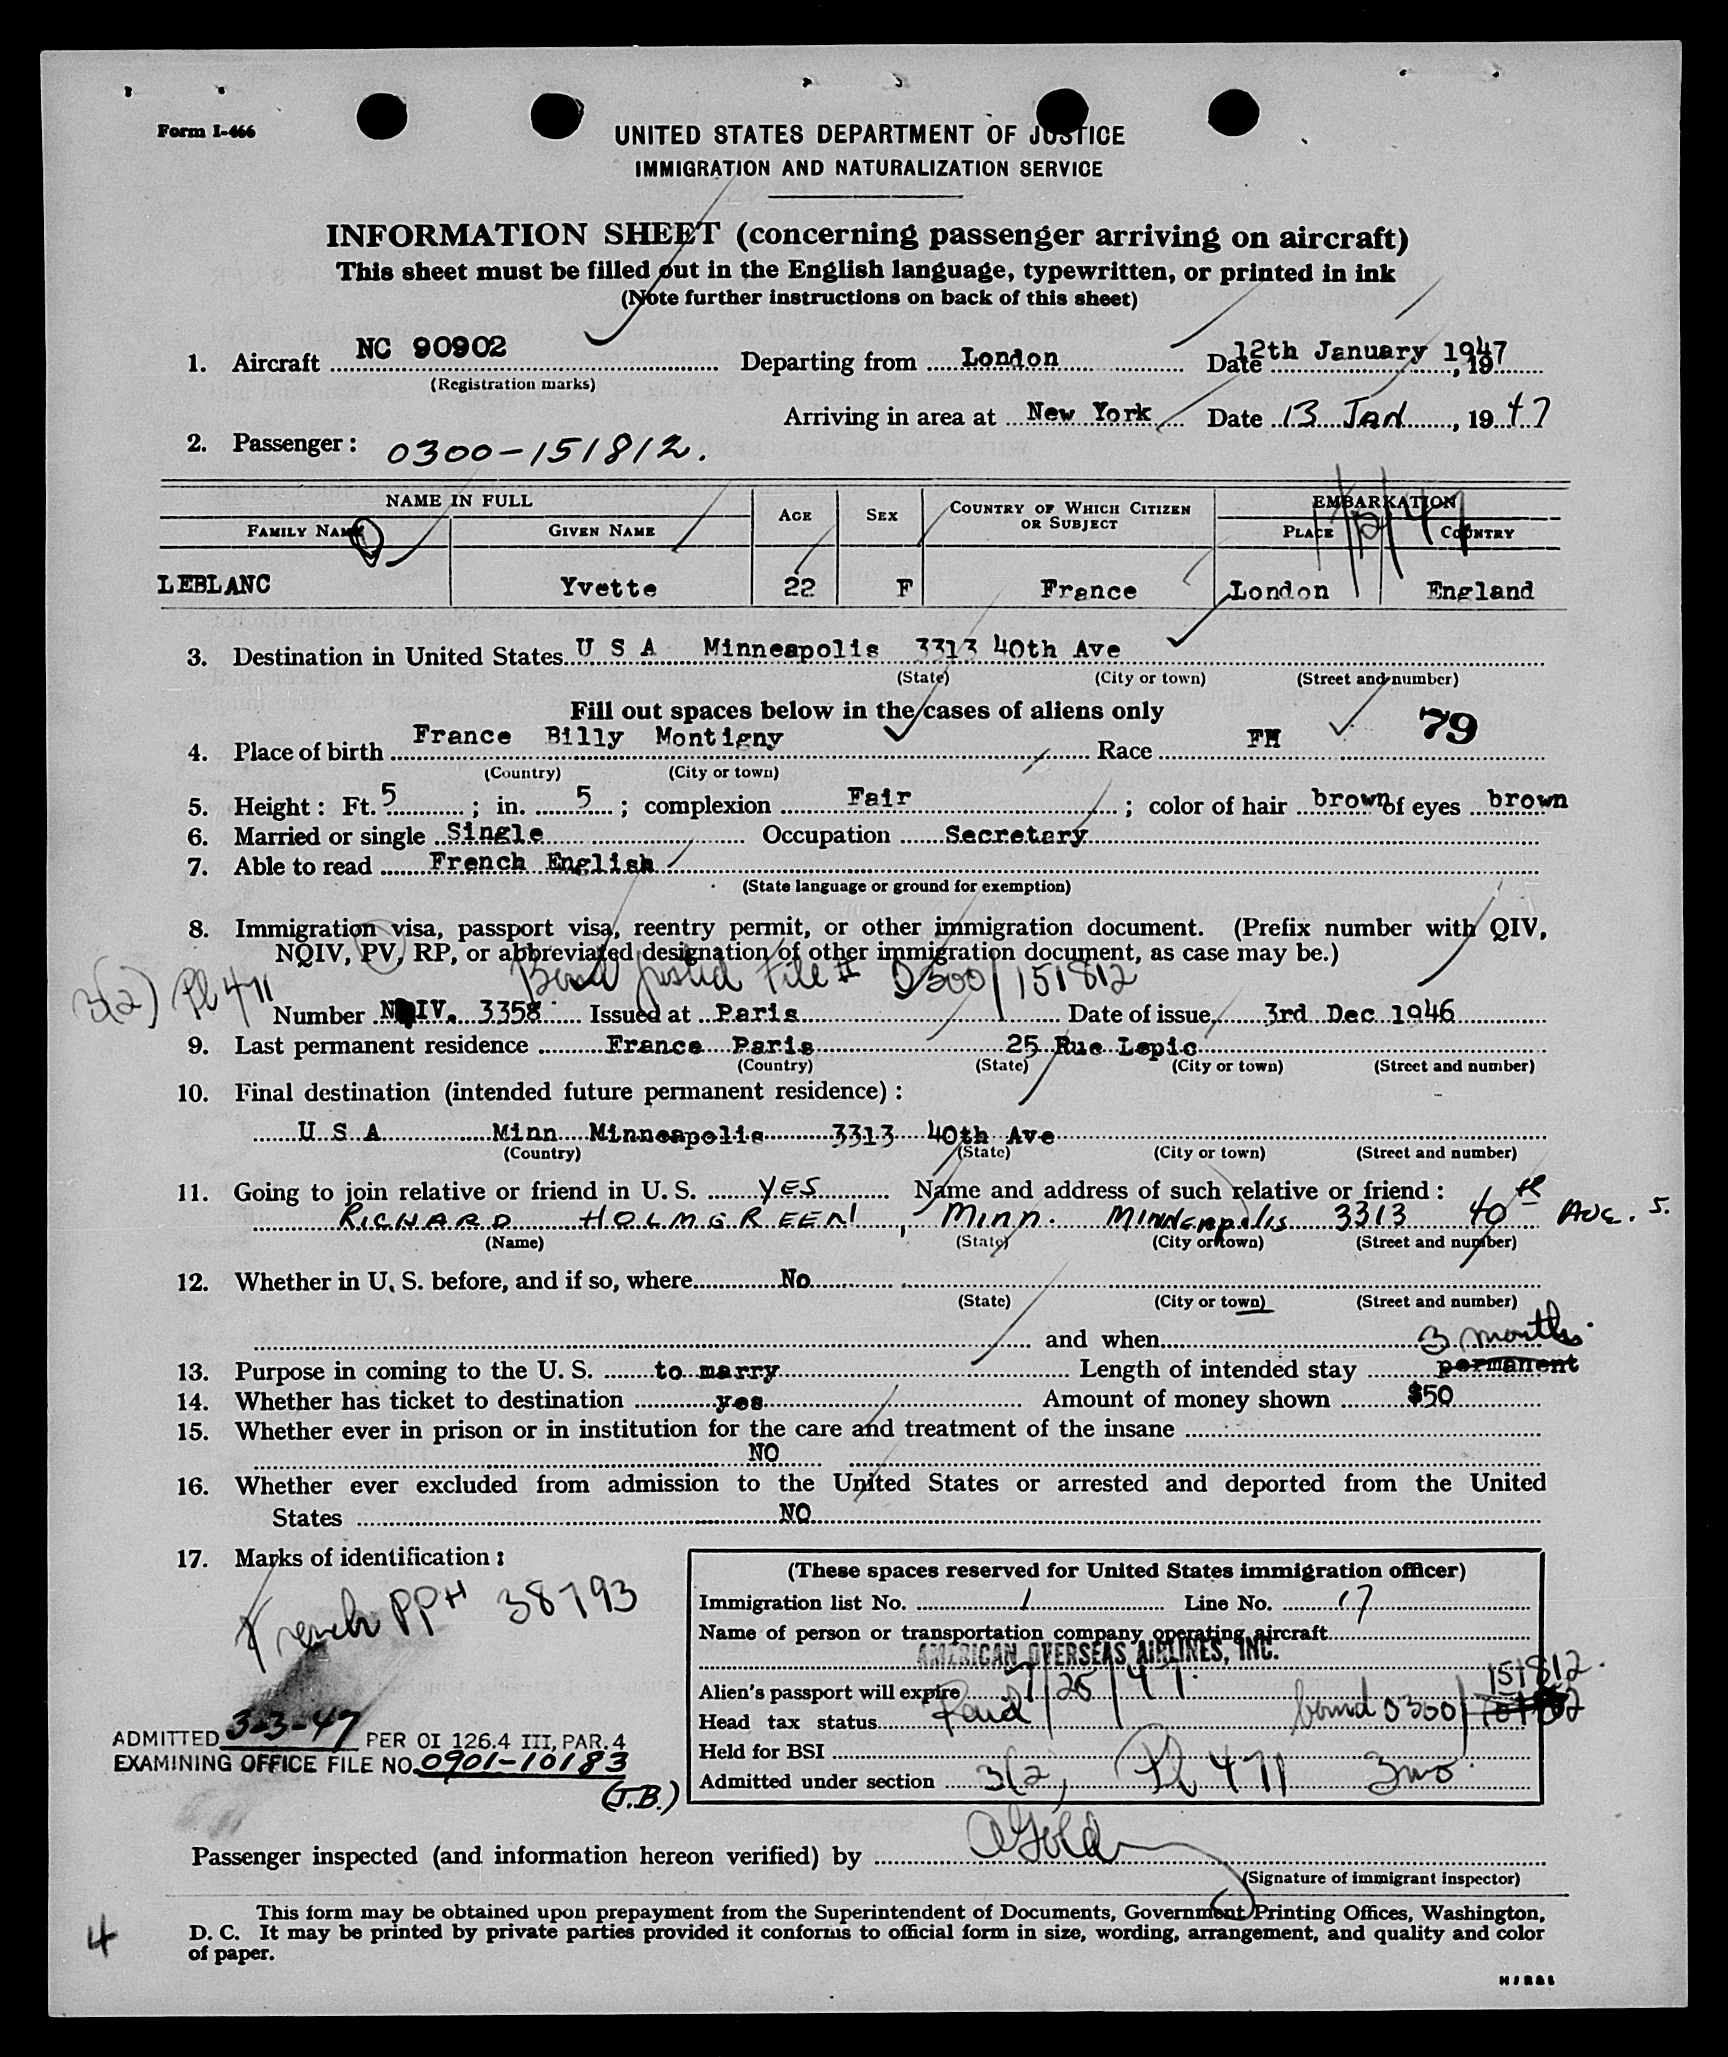 Form I-466
UNITED STATES DEPARTMENT OF JUSTICE
IMMIGRATION AND NATURALIZATION SERVICE
INFORMATION SHEET (concerning passenger arriving on aircraft)
This sheet must be filled out in the English language, typewritten, or printed in ink
(Note further instructions on back of this sheet)
1. Aircraft NC 90902 Departing from London Date 12th January 1947, 19
(Registration marks)
Arriving in area at New York Date 13 JAN, 1947
2. Passenger: 0300-151812.
NAME IN FULL AGE SEX COUNTRY OF WHICH CITIZEN OR SUBJECT EMBARKATION
FAMILY NAME GIVEN NAME PLACE COUNTRY
LEBLANC Yvette 22 F France London England
3. Destination in United States U S A Minneapolis 3313 40th Ave
(State) (City or town) (Street and number)
Fill out spaces below in the cases of aliens only
79
4. Place of birth France Billy Montigny Race FM
(Country) (City or town)
5. Height: Ft. 5; in. 5; complexion Fair; color of hair brown of eyes brown
6. Married or single Single Occupation Secretary
7. Able to read French English
(State language or ground for exemption)
8. Immigration visa, passport visa, reentry permit, or other immigration document. (Prefix number with QIV,
NQIV, PV, RP, or abbreviated designation of other immigration document, as case may be.)
3(2) Pl 471 Bond posted File # 0300/151812
Number NQIV. 3358 Issued at Paris Date of issue 3rd Dec 1946
9. Last permanent residence France Paris 25 Rue Lepic
(Country) (State) (City or town) (Street and number)
10. Final destination (intended future permanent residence):
U S A Minn Minneapolis 3313 40th Ave
(Country) (State) (City or town) (Street and number)
11. Going to join relative or friend in U. S. YES Name and address of such relative or friend:
RICHARD HOLMGREEN, Minn. MINNEapolis 3313 40th AVE. S.
(Name) (State) (City or town) (Street and number)
12. Whether in U. S. before, and if so, where No
(State) (City or town) (Street and number)
and when
3 months.
13. Purpose in coming to the U. S. to marry Length of intended stay permanent
14. Whether has ticket to destination yes Amount of money shown $50
15. Whether ever in prison or in institution for the care and treatment of the insane
NO
16. Whether ever excluded from admission to the United States or arrested and deported from the United
States NO
17. Marks of identification:
French PP# 38793
ADMITTED 3-3-47 PER OI 126.4 III, PAR. 4
EXAMINING OFFICE FILE NO. 0901-10183
(J.B.)
(These spaces reserved for United States immigration officer)
Immigration list No. 1 Line No. 17
Name of person or transportation company operating aircraft
AMERICAN OVERSEAS AIRLINES, INC.
Alien's passport will expire 7/25/47 151812.
Head tax status Paid bond 0300/
Held for BSI
Admitted under section 3(2) Pl 471 3 mo.
Passenger inspected (and information hereon verified) by
(Signature of immigrant inspector)
This form may be obtained upon prepayment from the Superintendent of Documents, Government Printing Offices, Washington,
D. C. It may be printed by private parties provided it conforms to official form in size, wording, arrangement, and quality and color
of paper.
4